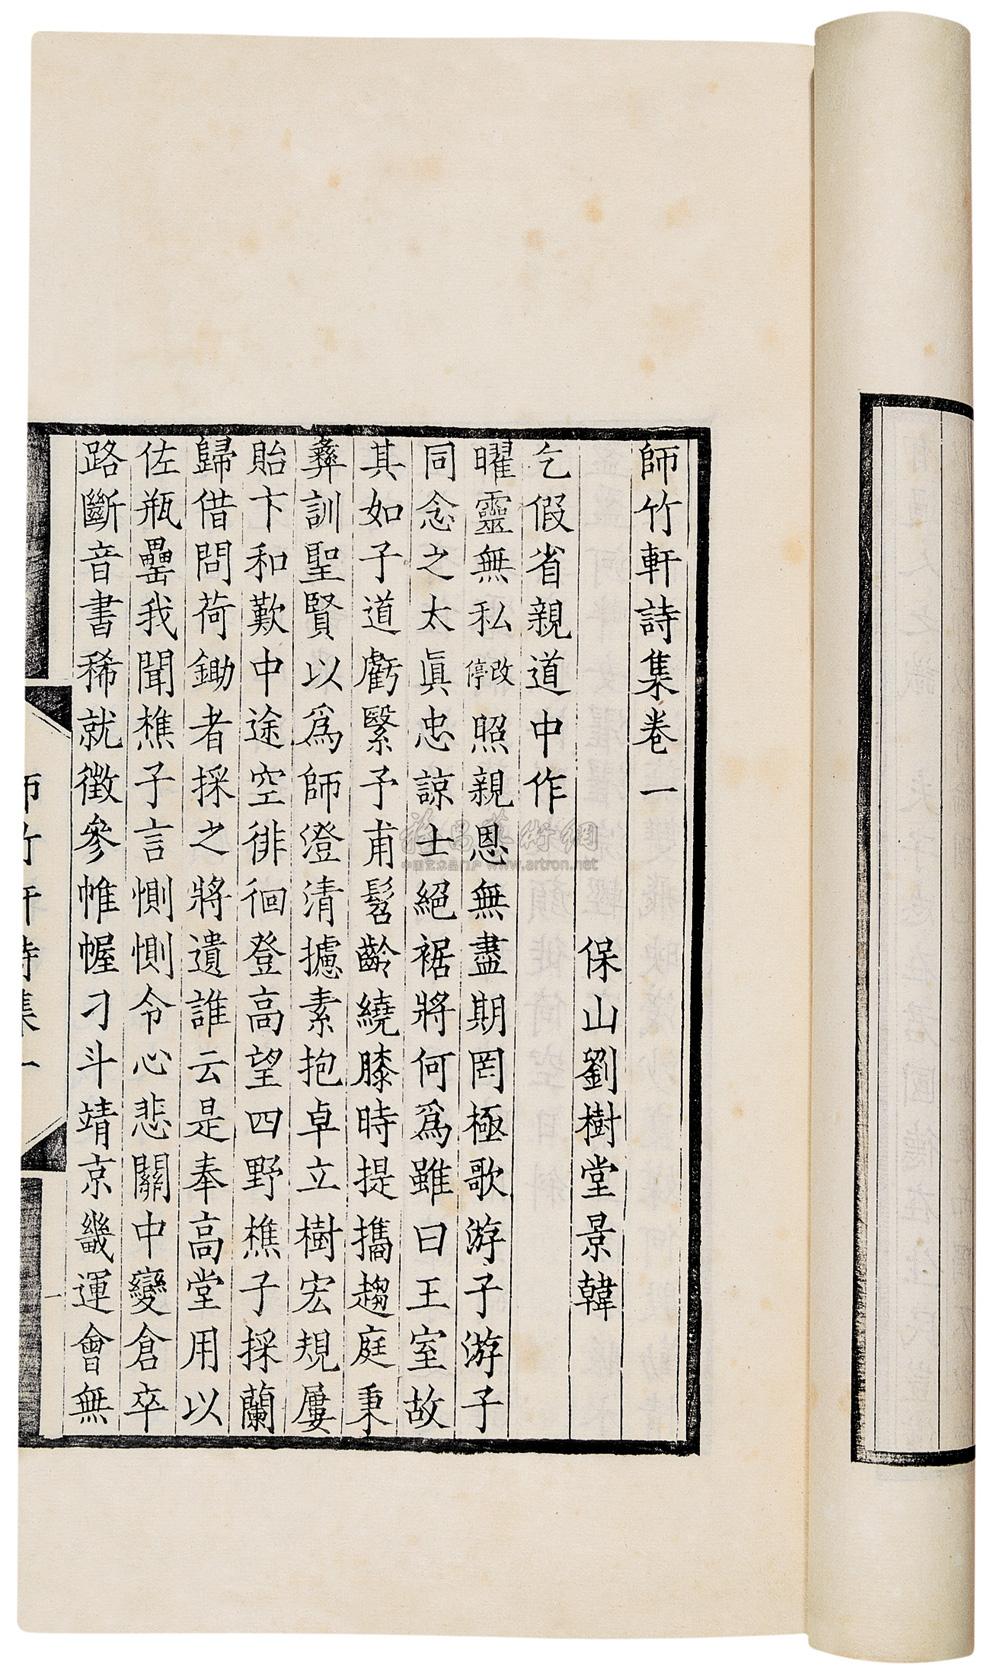 師竹軒詩集卷一
保山劉樹堂景韓
乞假省親道中作
曜靈無私改停照親恩無盡期罔極歌游子游子
同念之太眞忠諒士絕裾將何爲雖曰王室故
其如子道虧繄予甫髫齡繞膝時提攜趨庭秉
彝訓聖賢以爲師澄清攄素抱卓立樹宏規屢
貽卞和歎中途空徘徊登高望四野樵子採蘭
歸借問荷鋤者採之將遺誰云是奉高堂用以
佐瓶罍我聞樵子言惻惻令心悲關中變倉卒
路斷音書稀就徵參帷幄刁斗靖京畿運會無
師竹軒詩集一
一